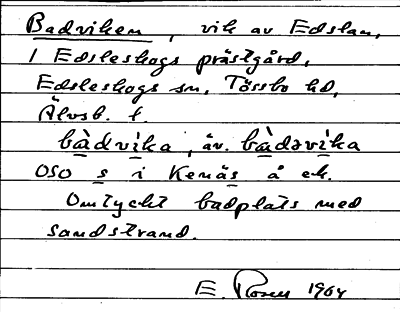 Badviken, vik av Edslan,
i Edsleskogs prästgård,
Edsleskogs sn, Tössbo hd,
Älvsb. l.
bàdvika, äv. bàdəvika
OSO s i Kenäs å ek.
Omtyckt badplats med
sandstrand.
E. Rosen 1964